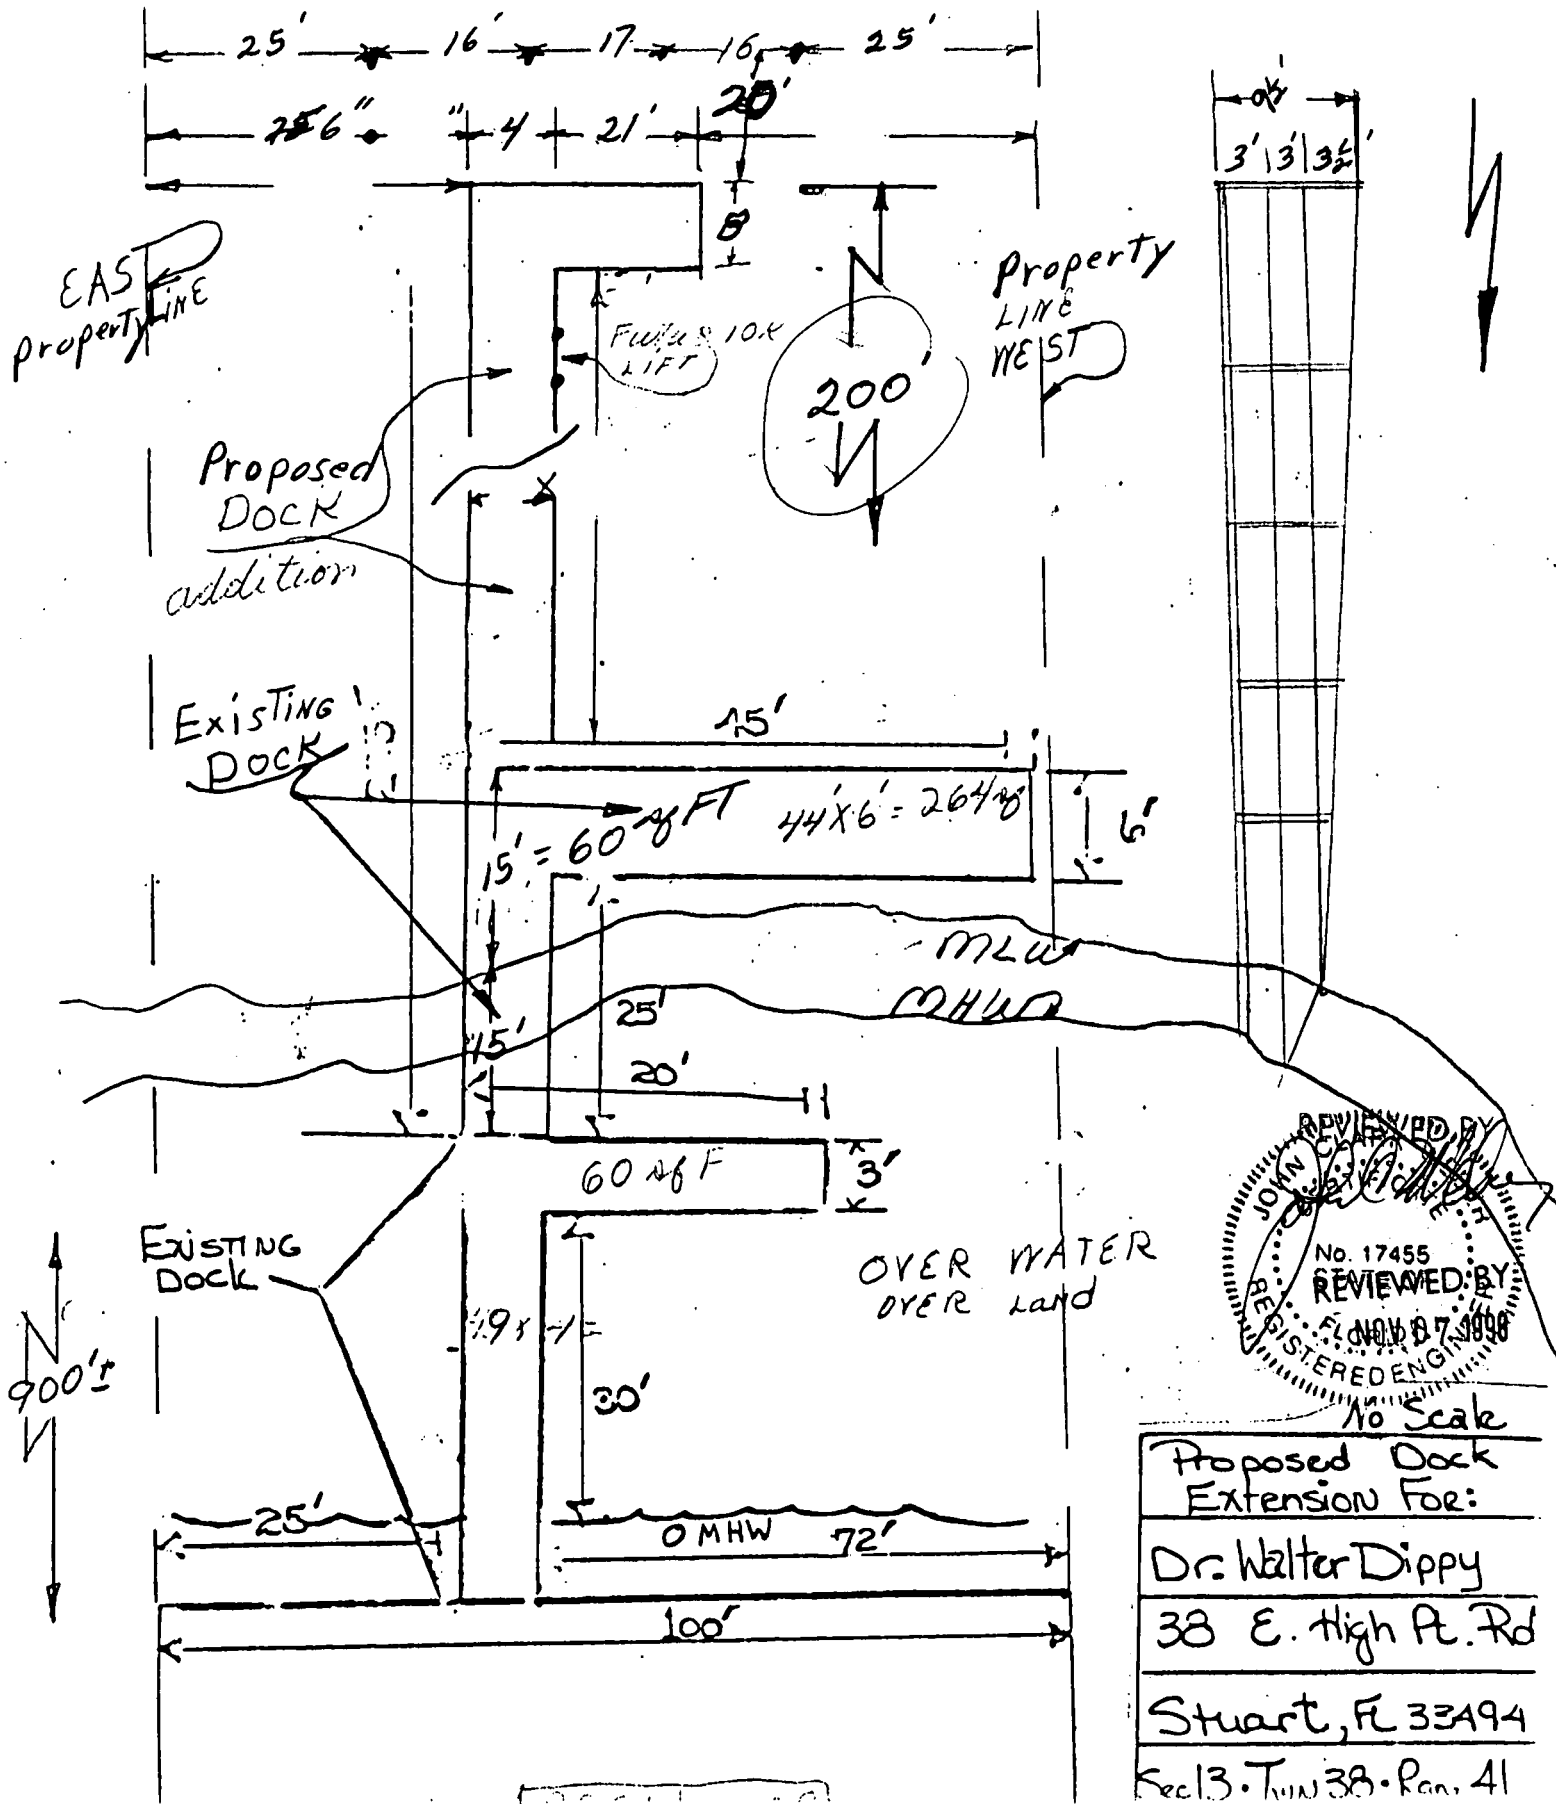 25' 16' 17 16 25'
6" 4 21' 20'
3' 3' 3½'
8
EAST
Property LINE
Property
LINE
WEST
10K
LIFT
200'
Proposed
DOCK
addition
Existing
DOCK
45'
15' = 60 sq FT 44'X6' = 264 sq
6'
MLW
MHW
25'
15'
20'
60 sq F
3'
Existing
Dock
OVER WATER
OVER Land
900'±
30'
25'
OMHW 72'
100'
REVIEWED BY
JOHN
No. 17455
REVIEWED BY
NOV 07
REGISTERED ENGIN
No Scale
Proposed Dock
Extension For:
Dr. Walter Dippy
38 E. High Pt. Rd
Stuart, FL 33494
Sec 13 · Twn 38 · Ran. 41